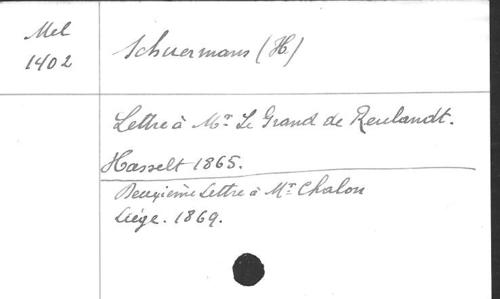 Mel
1402
Schuermans (H)
Lettre à Mr Le Grand de Reulandt.
Hasselt 1865.
Deuxième Lettre à Mr Chalon
Liége. 1869.